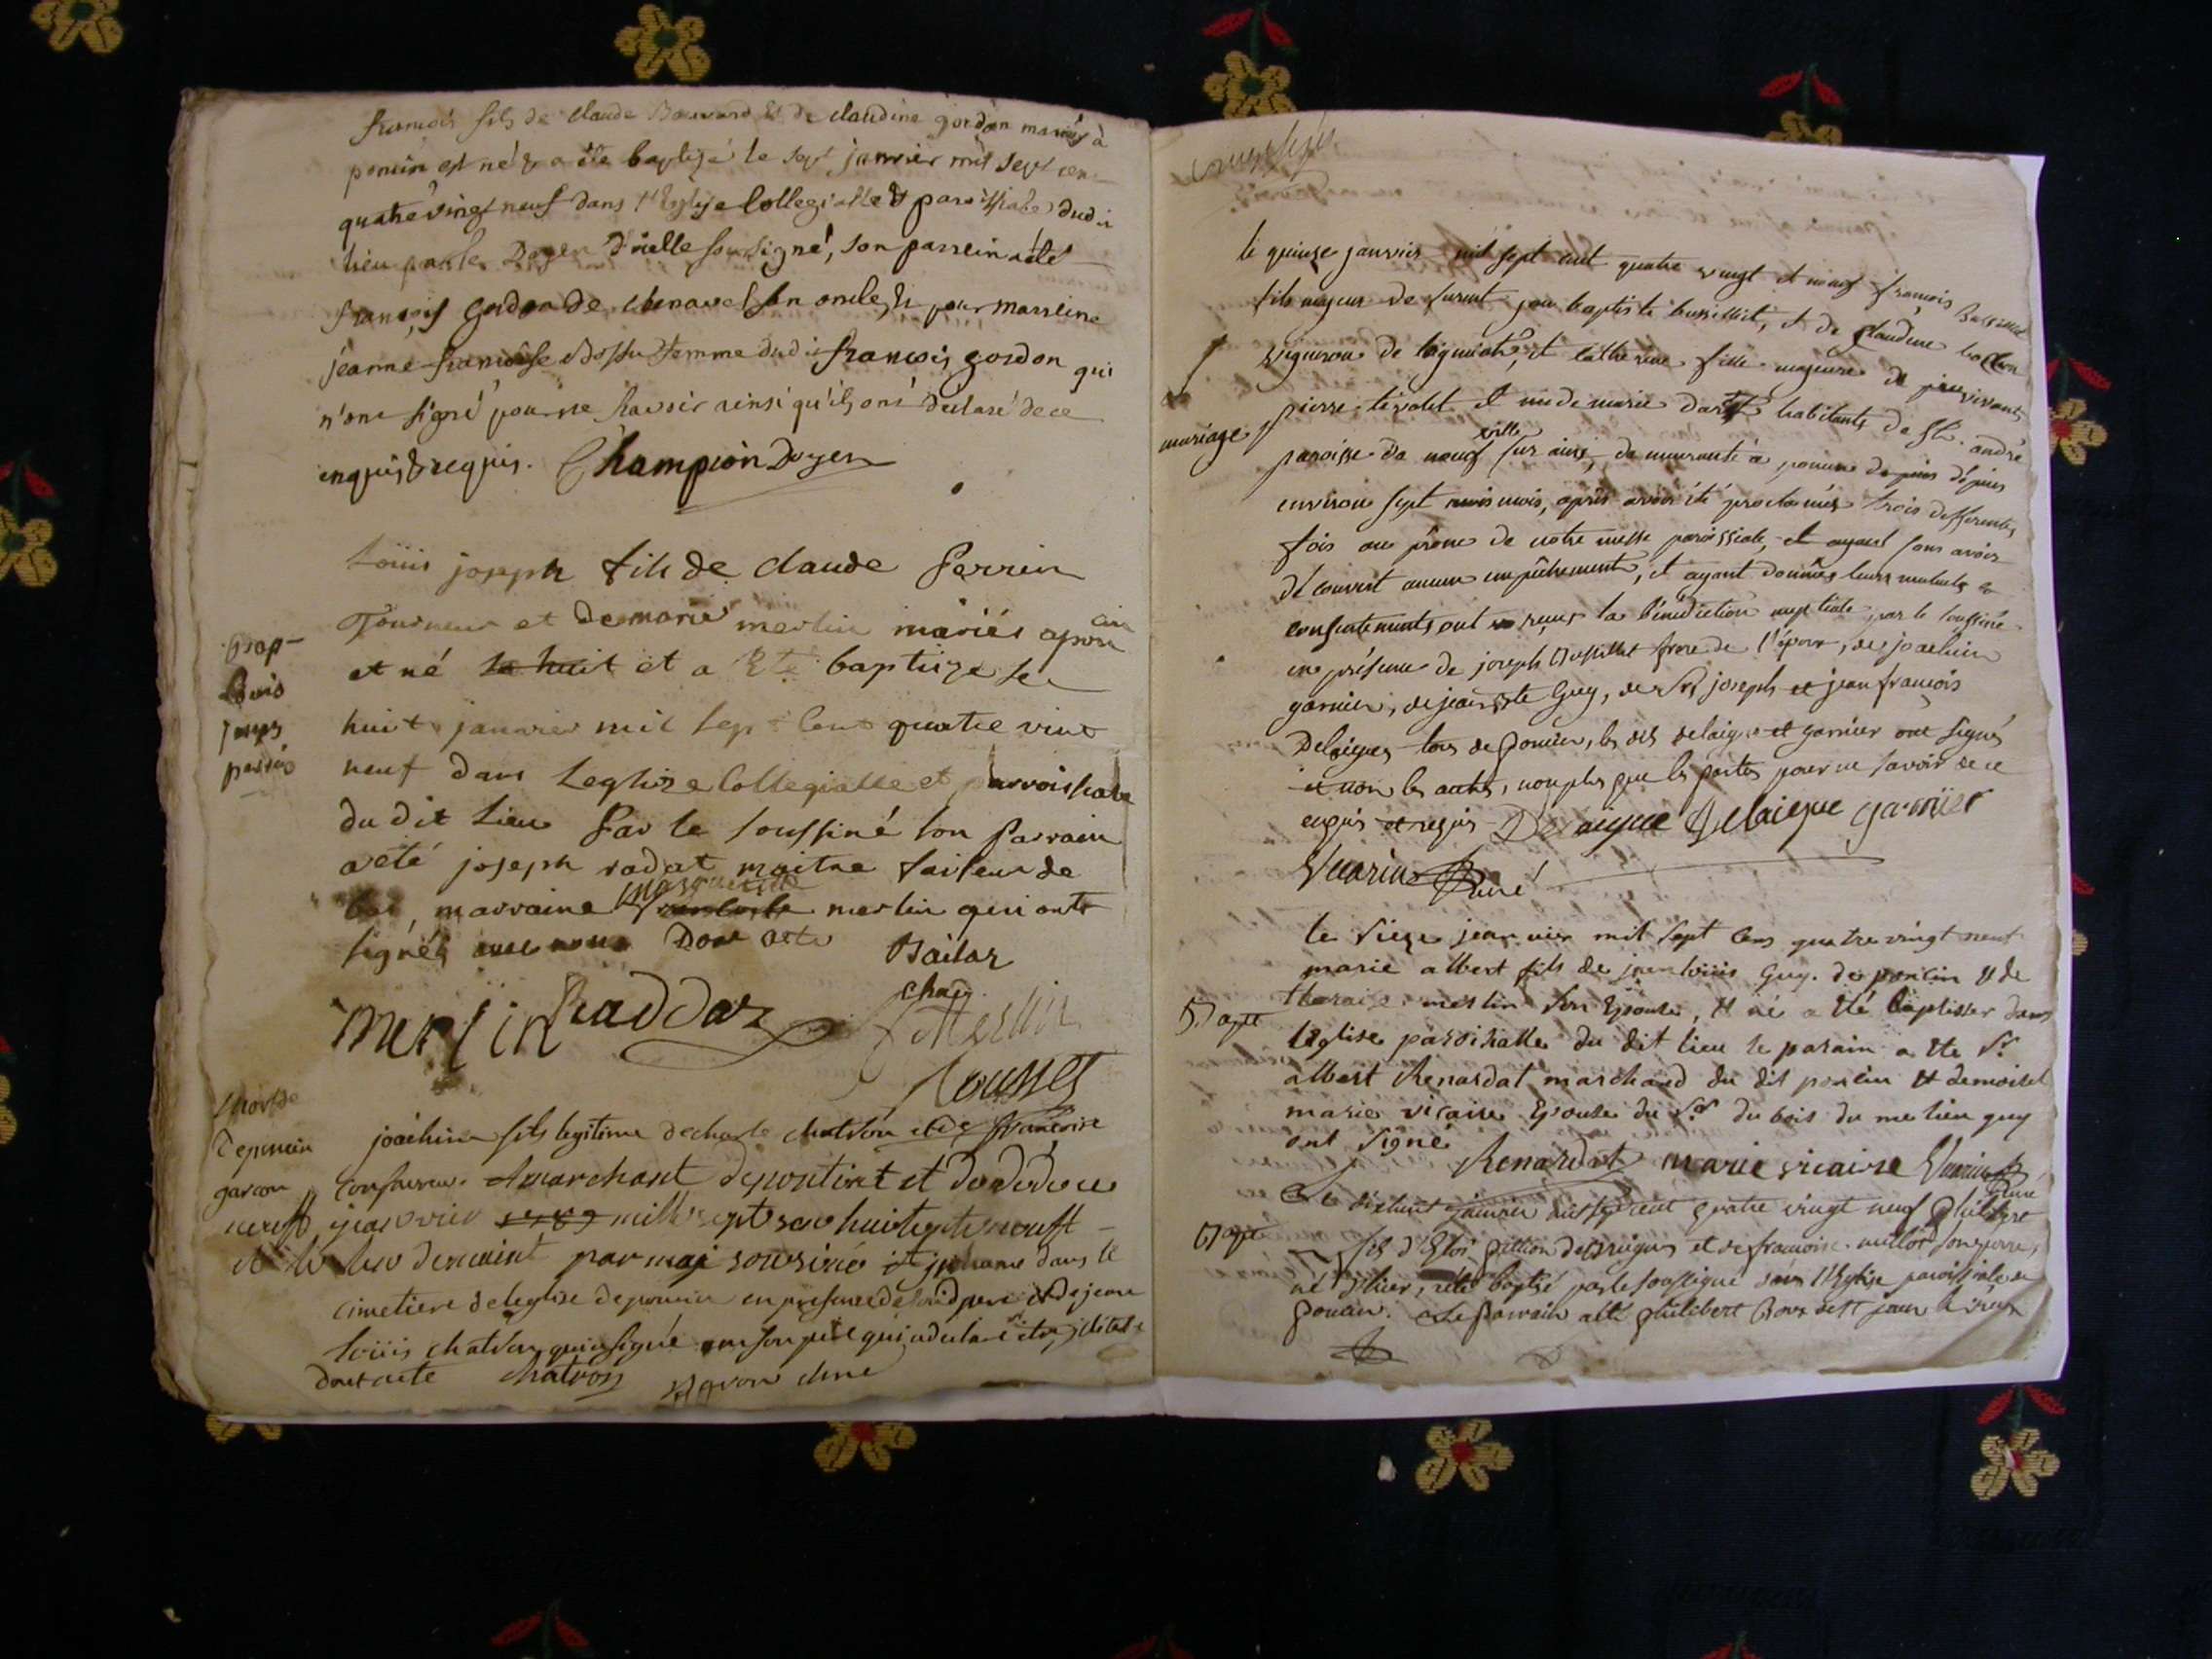 françois fils de claude Bouvard et de claudine gordon mariés à
poncin est né & a été baptizé le sept janvier mil sept cen
quatre vingt neuf dans l'Eglise Collegialle & paroissiale dudit
lieu par le Doyen d'icelle soussigné, son parrein a été
françois gordon de chenavel son oncle, & pour marreine
jeanne françoise Bossu femme dudit françois gordon qui
n'ont signé pour ne sçavoir ainsi qu'ils ont declaré de ce
enquis & requis. Champion Doyen
Bap-
Louis
joseph
perrin
Loüis joseph fils de claude Perrin
Tourneur et de marie merlin mariés a poncin
et né le huit et a Eté baptize le
huit janvier mil sept cent quatre vint
neuf dans Leglise Collegialle et parroissiale
du dit Lieu Par le soussiné son Parrain
a eté joseph radat maitre taileur de
marraine merlin qui ont
signés avec nous Dont acte Bailat
chan.
merlin Raddaz Merlin
Rousset
Mort de
de poncin
garcon
joachim fils legitime de charle chatron et de françoise
marchant de poncin et et
neuff janvier 1789 mille sept sen huitepte neuff
par moi sousiné et inhumé dans le
cimetiere de leglise de poncin en presence de sondit pere et de jean
loüis chatron qui a signé non son pere qui a declaré etre jlitere
dont acte chatron Savon chne
le quinze janvier mil sept cent quatre vingt et neuf françois Bussillet
fils majeur de furent jean baptiste bussillet, et de claudine
vigneron de et catherine fille majeure de vivants
mariage
pierre tévolet et de marie habitants de St. andré
paroisse de neuf ville sur ains, demeurante à poncin depuis dépuis
environ sept mois mois, après avoir été proclamés trois differentes
fois au prone de notre messe paroissiale, et ayant sans avoir
découvert aucun empêchement, et ayant donnés leurs mutuels
consentements ont reçus la bénédiction nuptiale par le soussiné
en présence de joseph Bussillet frere de l'époux, de joachim
garnier, de jean bte Guy, de Srs joseph et jean françois
Delaigues tous de Poncin, les dts delaigue et garnier ont signés
et non les autres, non plus que les parties pour ne savoir de ce
enquis et requis Delaigue Delaigue garnier
Vuarin Curé
le sieze jeanvier mil sept cens quatre vingt neuf
marie albert fils de jean loüis Guy. de poncin & de
Bapte
therais merlin son Epouse, & né a Eté baptisser dans
léglise paroisialle du dit lieu le parain a Ete Sr.
albert Renardat marchand du dit poncin & demoisel
marie vicaire Epouse du Sr du bois du me lieu quy
ont signé
Renardat marie vicaire Vuarin Curé
Le dixhuit janvier mil sept cent quatre vingt neuf Philibert
Bapt
fils d'Eloi Gillion de et de francoise millot son epouse,
né d'hier, a été baptisé par le soussigné dans l'Eglise paroissiale de
poncin. Le parrain a été philibert